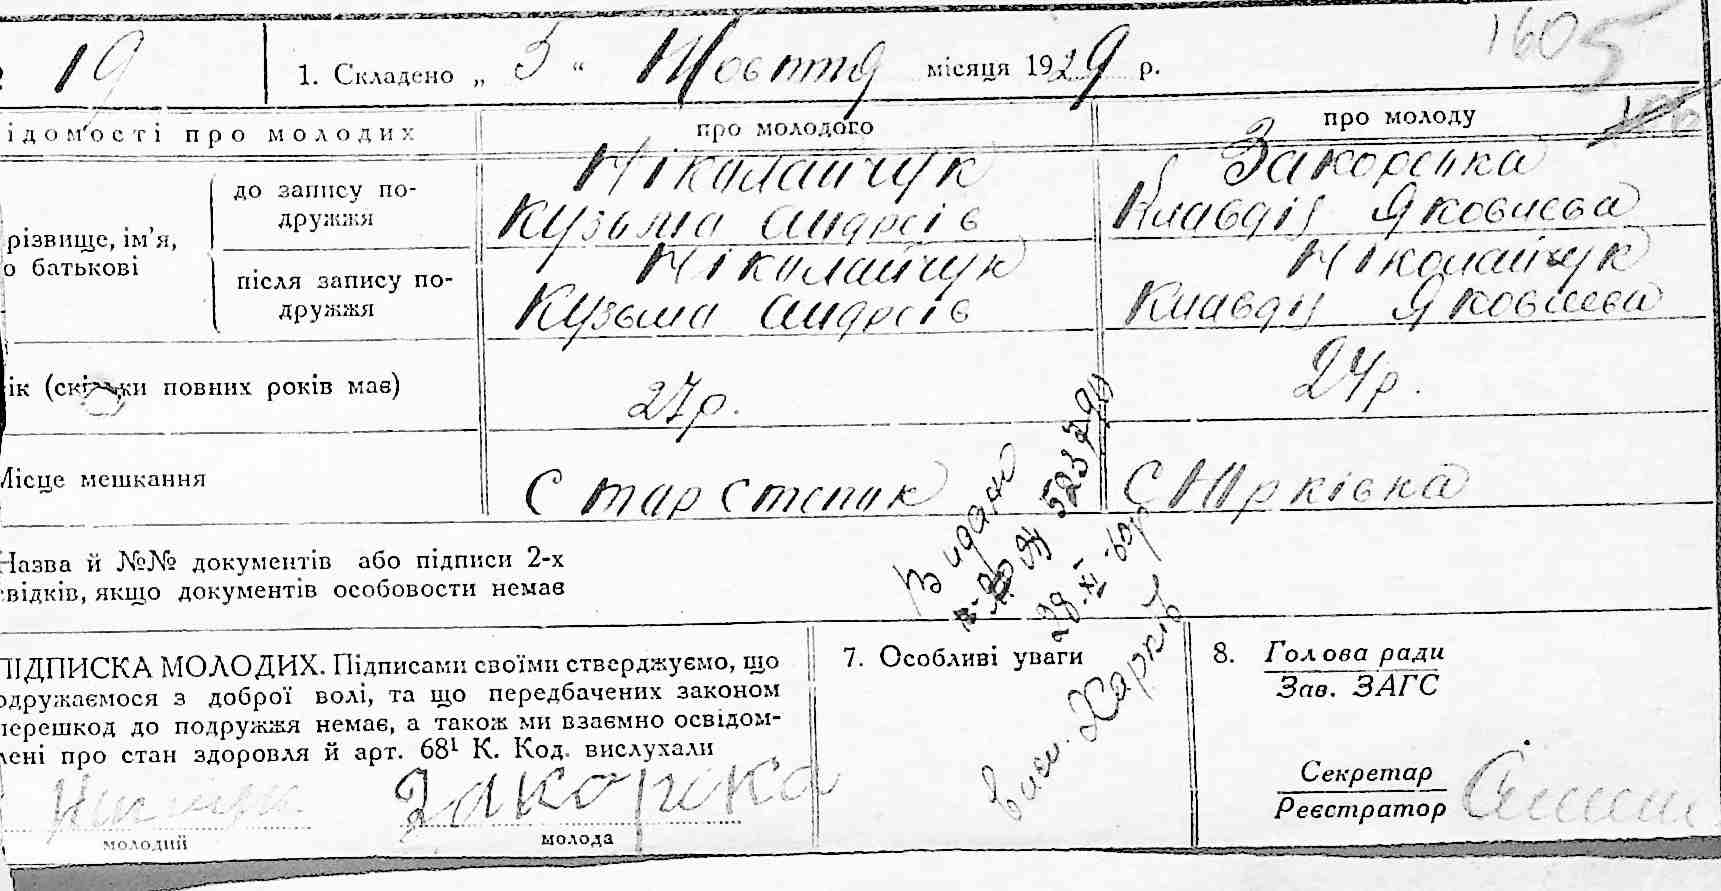 19
1. Складено „ 3 “ Жовтня місяця 1929 р.
1605
ідомості про молодих
про молодого
про молоду
різвище, ім’я,
о батькові
до запису по-
дружжя
Ніколайчук
Кузьма Андреів
Закорська
Клавдія Яковлева
після запису по-
дружжя
Ніколайчук
Кузьма Андреів
Ніколайчук
Клавдія Яковлева
ік (скільки повних років має)
27р.
24р.
Місце мешкання
С Юрківка
Видано
523290
28.XI-60р
вис. Харків
Назва й №№ документів або підписи 2-х
свідків, якщо документів особовости немає
ПІДПИСКА МОЛОДИХ. Підписами своїми стверджуємо, що
одружаємося з доброї волі, та що передбачених законом
перешкод до подружжя немає, а також ми взаємно освідом-
лені про стан здоровля й арт. 68¹ К. Код. вислухали
Закорска
молодий
молода
7. Особливі уваги
8. Голова ради
Зав. ЗАГС
Секретар
Реєстратор